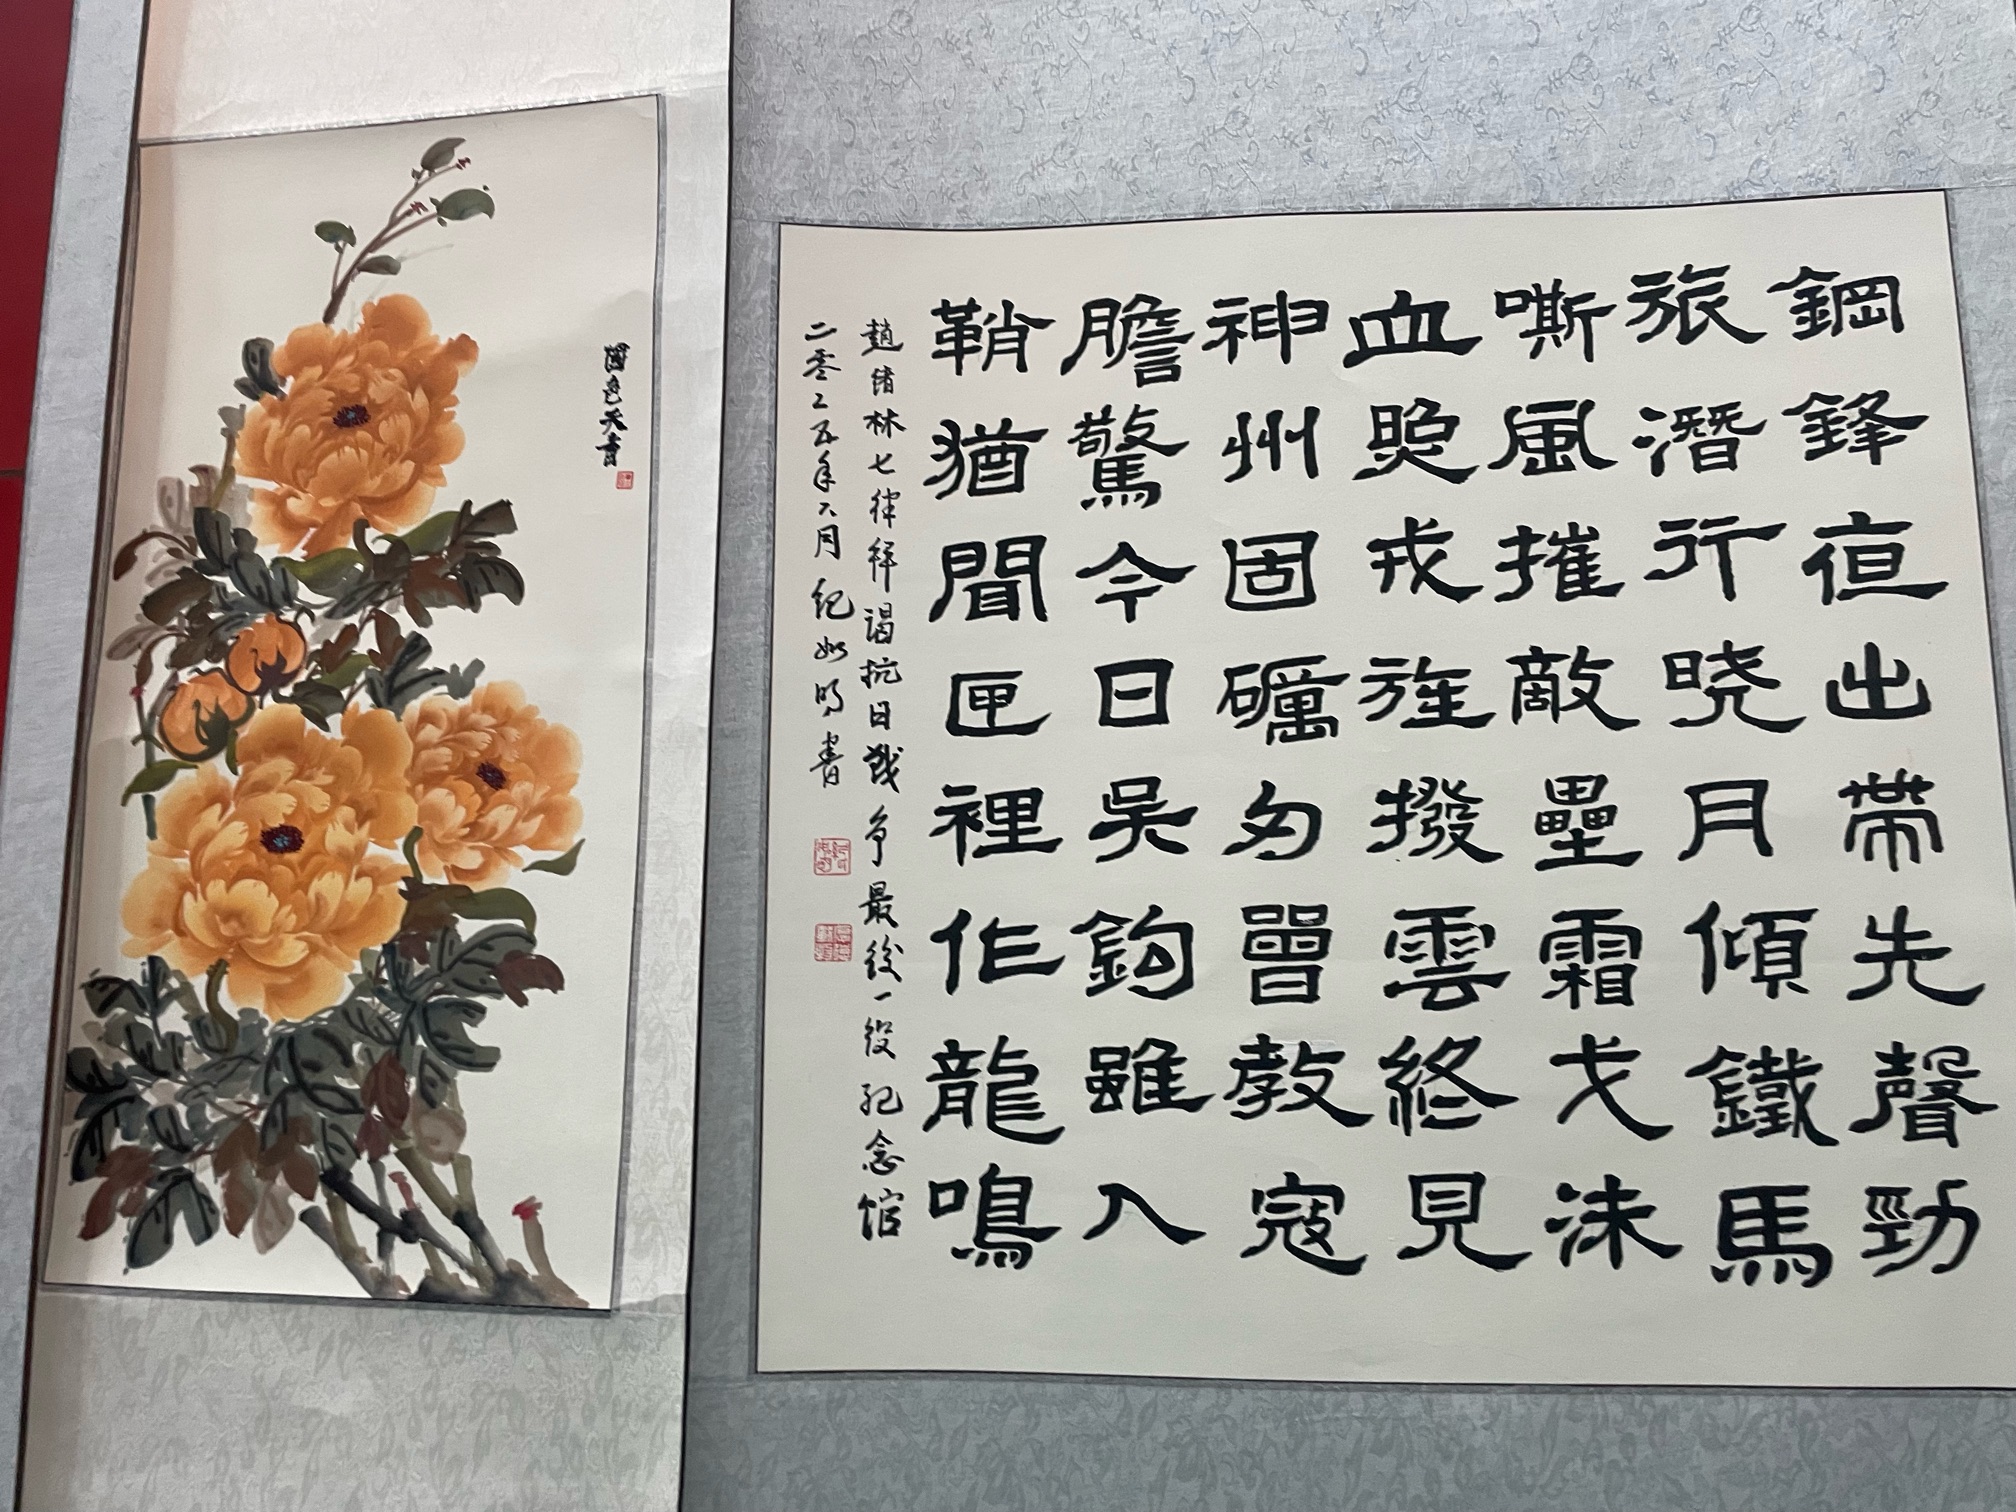 國色天香
鋼鋒夜出帶先聲勁
旅潛行曉月傾鐵馬
嘶風摧敵壘霜戈沫
血戎旌撥雲終見
神州固礪刃曾教寇
膽驚今日吳鉤雖入
鞘猶聞匣裡作龍鳴
趙緒林七律拜謁抗日戰争最後一役紀念館
二零二五年六月紀如明書